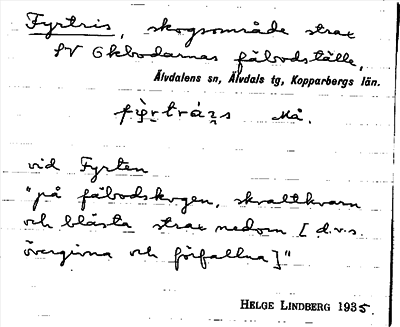 Fyrtris, skogsområde strax
SV Gkbodarnas fäbodställe,
Älvdalens sn, Älvdals tg, Kopparbergs län.
Må.
vid Fyrten
"på fäbodskogen, skvaltkvarn
och blästa strax nedom [d.v.s.
övergivna och förfallna]"
HELGE LINDBERG 1935.